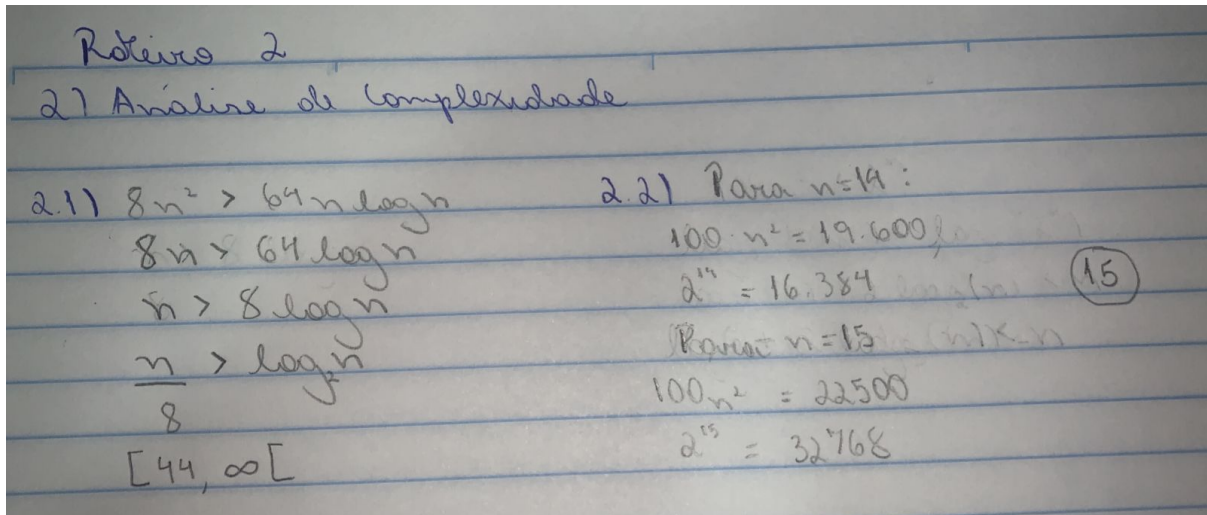 Roteiro 2
2) Análise de Complexidade
2.1) 8n² > 64n log n
8n > 64 log n
n > 8 log n
n/8 > log₂n
[44, ∞[
2.2) Para n=14:
100 · n² = 19.600
2¹⁴ = 16.384
15
Para n=15
100n² = 22500
2¹⁵ = 32768